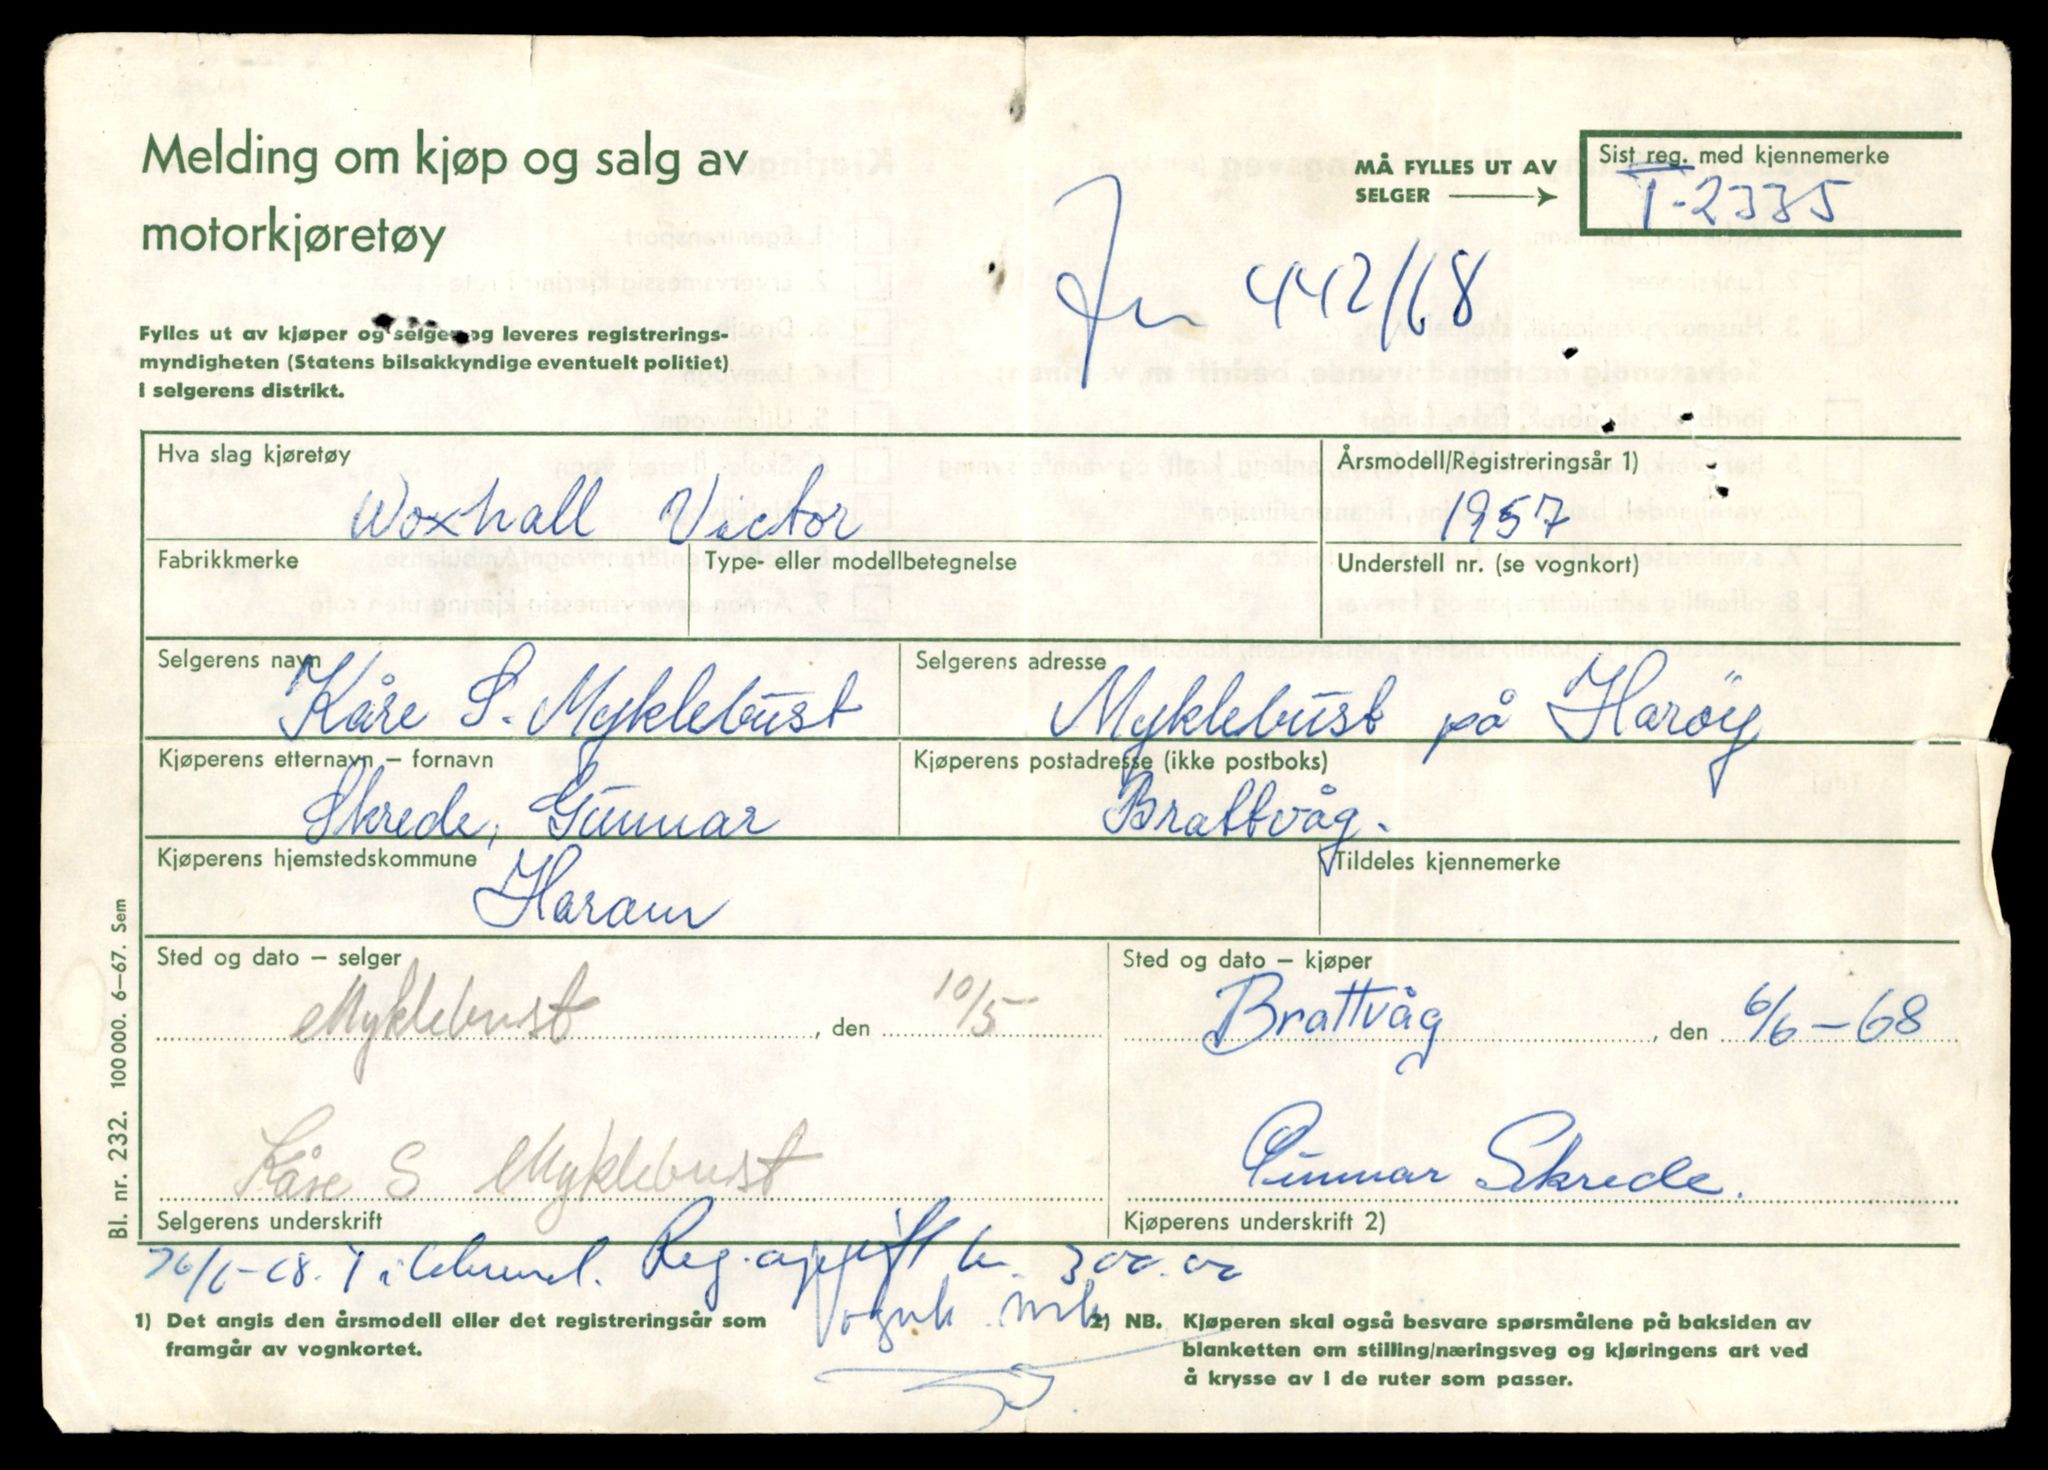 Melding om kjøp og salg av
motorkjøretøy
MÅ FYLLES UT AV
SELGER
Sist reg. med kjennemerke
T-2335
Jnr 442/68
Fylles ut av kjøper og selger og leveres registrerings-
myndigheten (Statens bilsakkyndige eventuelt politiet)
i selgerens distrikt.
Hva slag kjøretøy
Woxhall Victor
Årsmodell/Registreringsår 1)
1957
Fabrikkmerke
Type- eller modellbetegnelse
Understell nr. (se vognkort)
Selgerens navn
Kåre S. Myklebust
Selgerens adresse
Myklebust på Harøy
Kjøperens etternavn – fornavn
Skrede, Gunnar
Kjøperens postadresse (ikke postboks)
Brattvåg.
Kjøperens hjemstedskommune
Haram
Tildeles kjennemerke
Sted og dato – selger
Myklebust, den 10/5
Sted og dato – kjøper
Brattvåg, den 6/6 – 68
Kåre S Myklebust
Selgerens underskrift
Gunnar Skrede.
Kjøperens underskrift 2)
26/6-68. Reg.avgift kr. 300.00
Vognk.
1) Det angis den årsmodell eller det registreringsår som
framgår av vognkortet.
2) NB. Kjøperen skal også besvare spørsmålene på baksiden av
blanketten om stilling/næringsveg og kjøringens art ved
å krysse av i de ruter som passer.
Bl. nr. 232. 100 000. 6–67. Sem